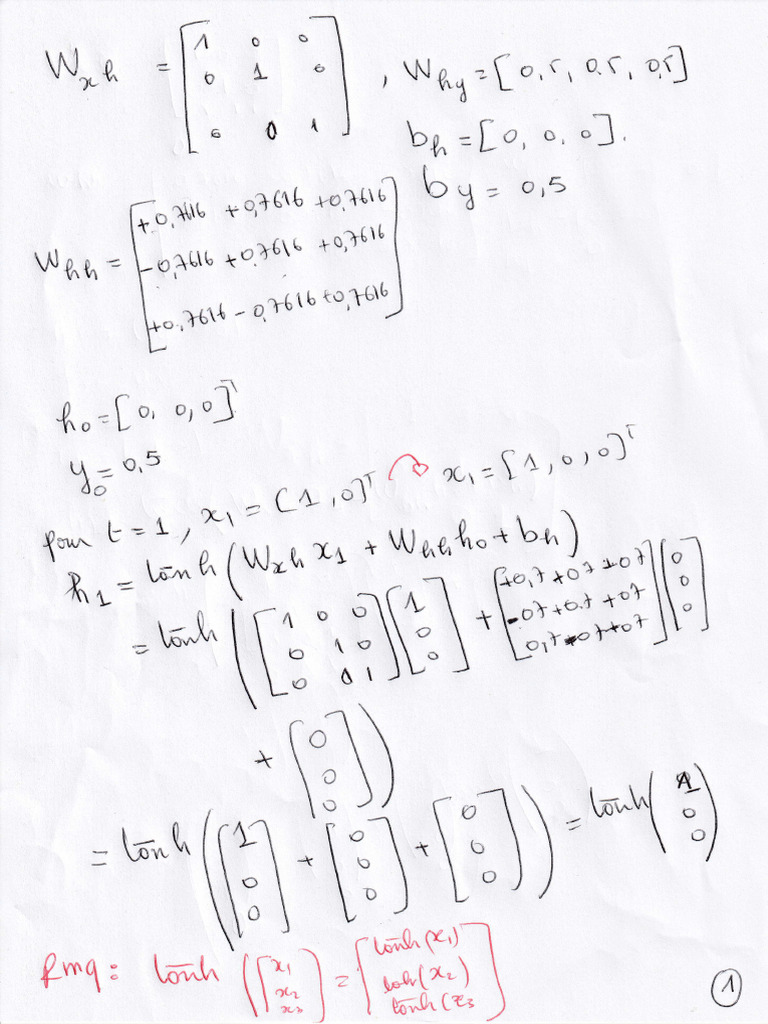 W_xh = [1 0 0; 0 1 0; 0 0 1], W_hy = [0,5, 0.5, 0,5]
b_h = [0, 0, 0].
b_y = 0,5
W_hh = [+0,7616 +0,7616 +0,7616; -0,7616 +0,7616 +0,7616; +0,7616 -0,7616 +0,7616]
h_0 = [0, 0, 0]^T
y_0 = 0,5
pour t = 1, x_1 = [1, 0]^T x_1 = [1, 0, 0]^T
h_1 = tanh(W_xh x_1 + W_hh h_0 + b_h)
= tanh([1 0 0; 0 1 0; 0 0 1] [1; 0; 0] + [+0,7 +07 +07; -07 +0.7 +07; 0,7 -07 +07] [0; 0; 0]
+ [0; 0; 0])
= tanh([1; 0; 0] + [0; 0; 0] + [0; 0; 0]) = tanh(1; 0; 0)
Rmq: tanh([x_1; x_2; x_3]) = [tanh(x_1); tanh(x_2); tanh(x_3]
1